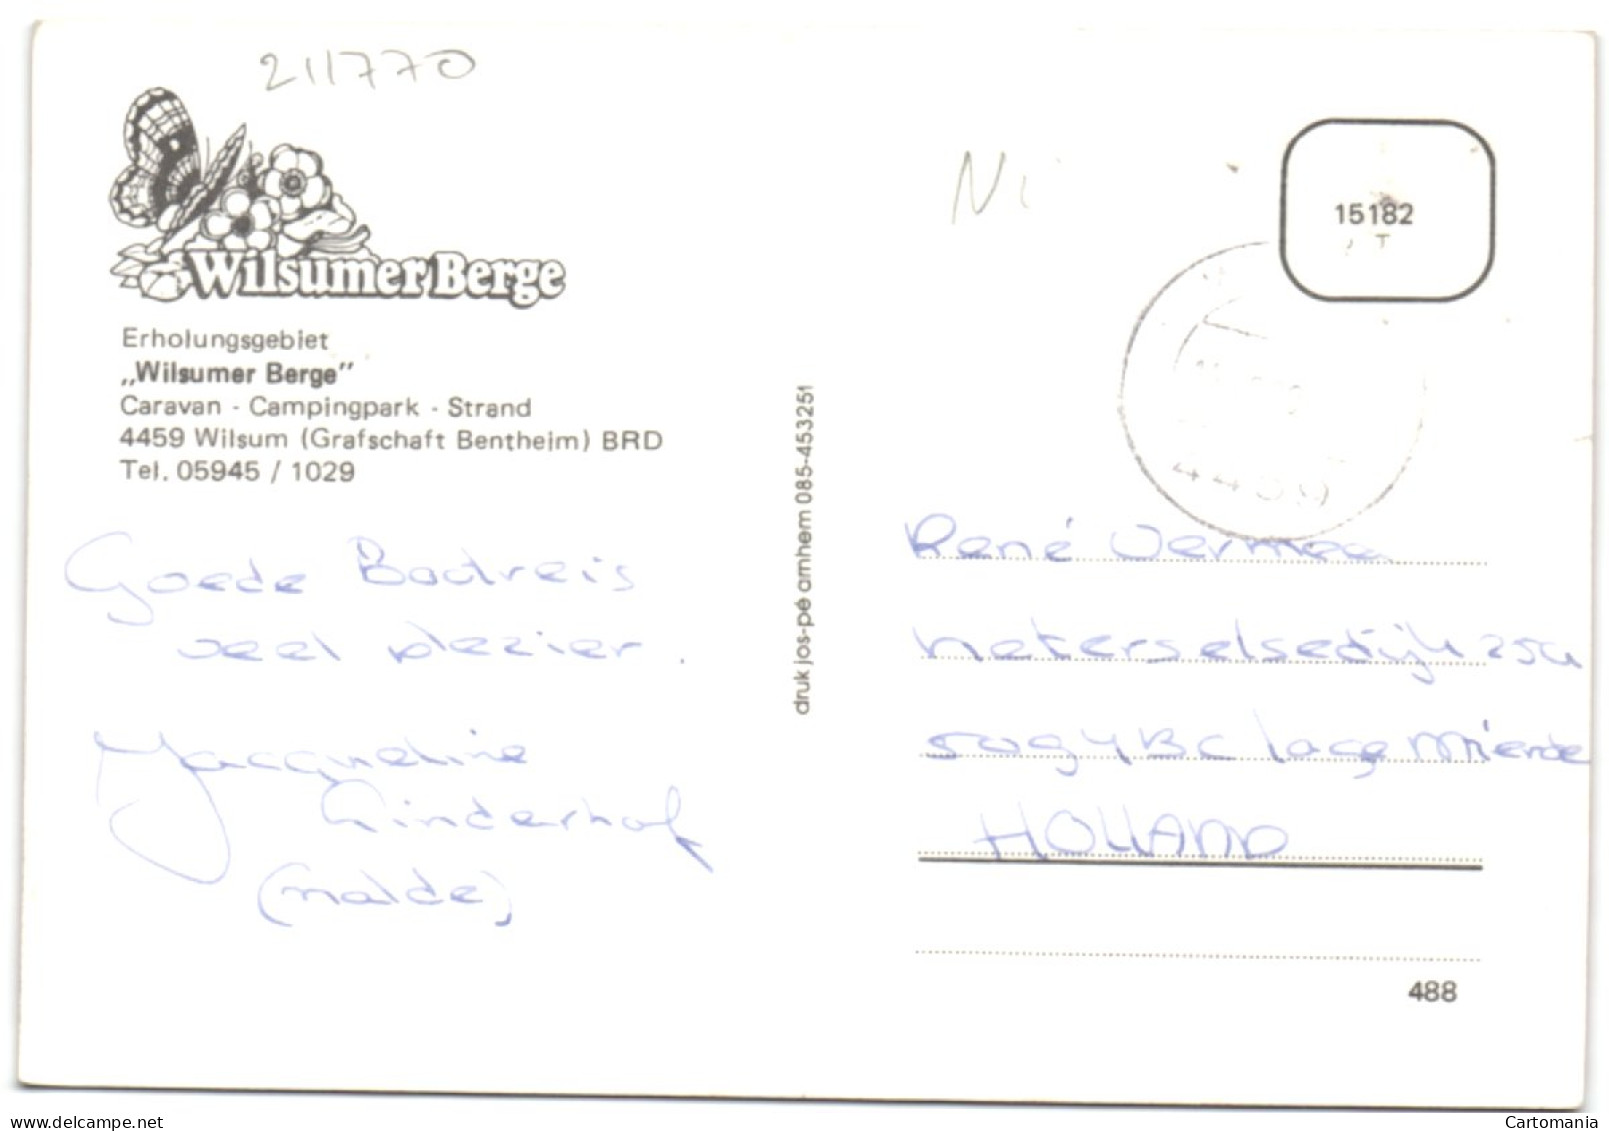 211770
Ni
Wilsumer Berge
15182
Erholungsgebiet
„Wilsumer Berge”
Caravan - Campingpark - Strand
4459 Wilsum (Grafschaft Bentheim) BRD
Tel. 05945 / 1029
4459
druk jos-pé arnhem 085-453251
Goede Bodreis
veel plezier.
Jacqueline
Linderhof
(malde)
René Vermee
Neterselsedijk 25a
5094BC lage Mierde
HOLLAND
488
www.delcampe.net
Cartomania